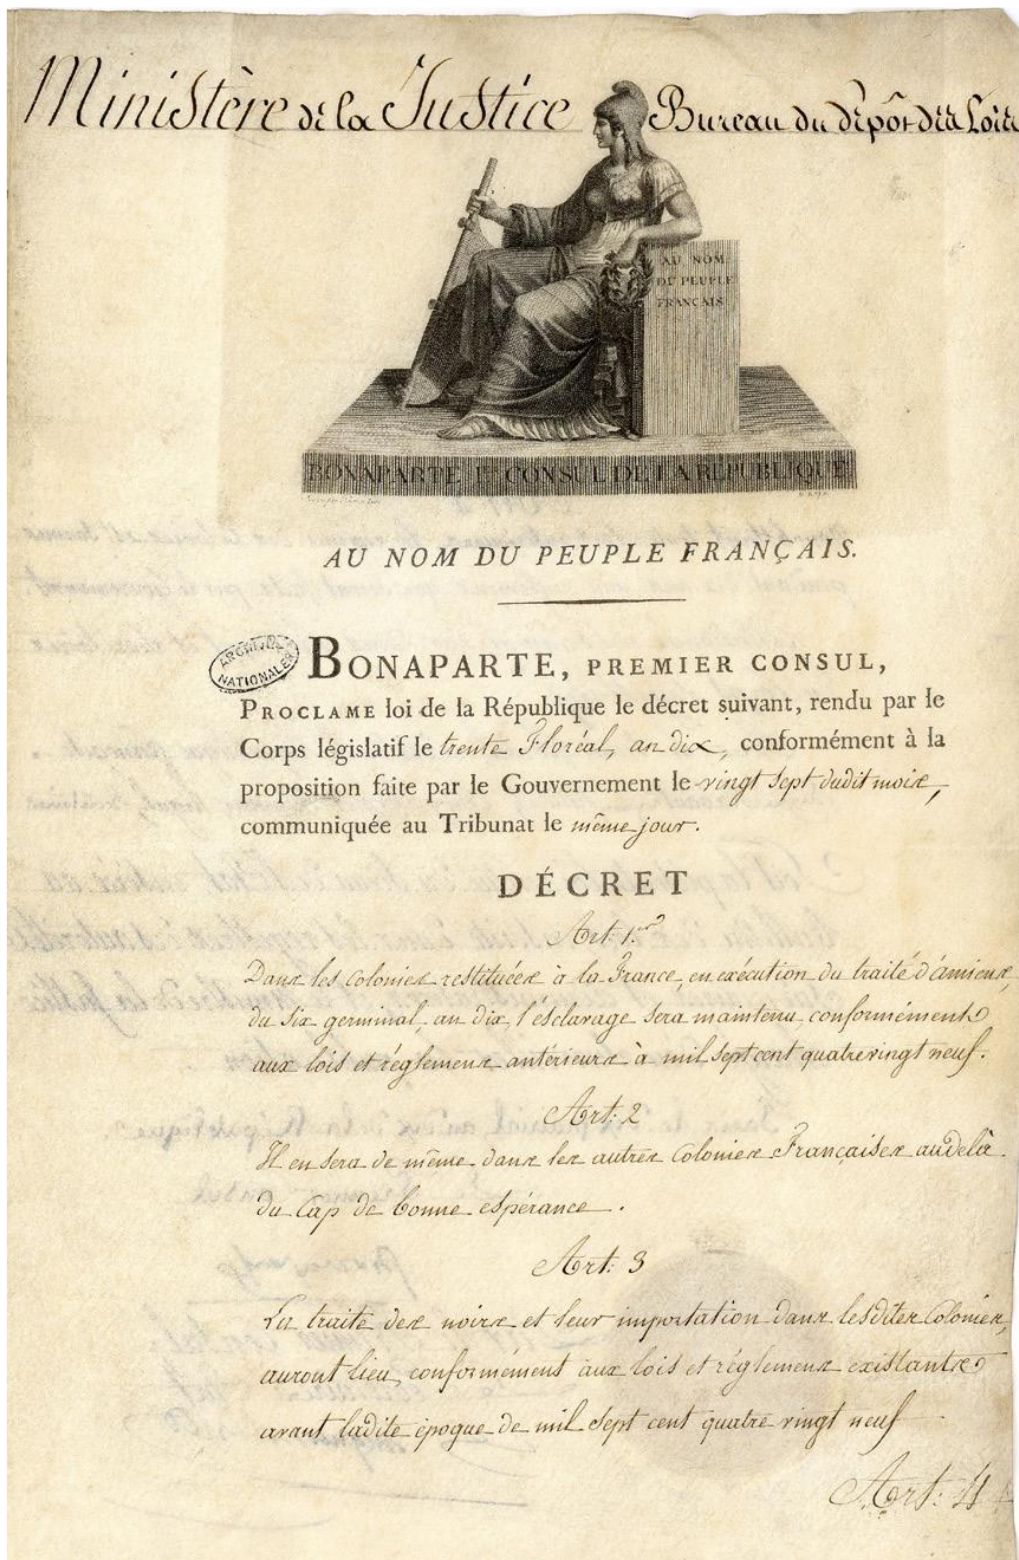 Ministère de la Justice Bureau du dépôt des Lois
AU NOM
DU PEUPLE
FRANÇAIS
BONAPARTE 1er CONSUL DE LA RÉPUBLIQUE
AU NOM DU PEUPLE FRANÇAIS.
ARCHIVES
NATIONALES
BONAPARTE, PREMIER CONSUL,
PROCLAME loi de la République le décret suivant, rendu par le
Corps législatif le trente Floréal, an dix, conformément à la
proposition faite par le Gouvernement le vingt sept dudit mois,
communiquée au Tribunat le même jour.
DÉCRET
Art: 1.er
Dans les colonies restituées à la France, en exécution du traité d'amiens,
du six germinal, an dix, l'ésclavage sera maintenu conformément
aux lois et réglemens antérieurs à mil sept cent quatre vingt neuf.
Art: 2
Il en sera de même dans les autres colonies Françaises au delà
du Cap de bonne espérance.
Art: 3
La traite des noirs et leur importation dans lesdites colonies,
auront lieu, conformément aux lois et réglemens existants
avant ladite époque de mil sept cent quatre vingt neuf
Art: 4